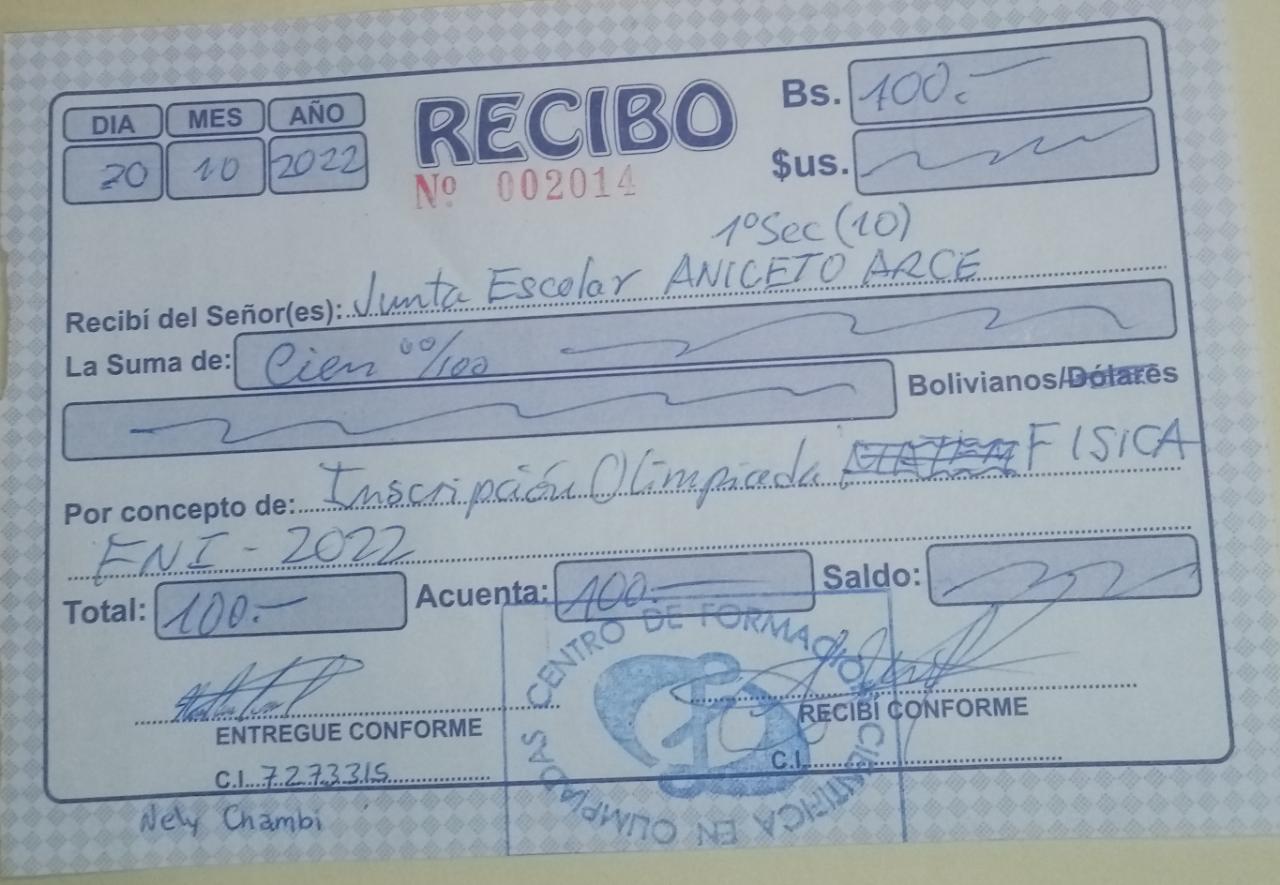 DIA MES AÑO
20 10 2022
RECIBO
Nº 002014
Bs. 100.-
$us.
1º Sec (10)
Recibí del Señor(es): Junta Escolar ANICETO ARCE
La Suma de: Cien 00/100
Bolivianos/Dólares
Por concepto de: Inscripción Olimpiada FISICA
ENI - 2022
Total: 100.- Acuenta: 100.- Saldo:
ENTREGUE CONFORME
C.I. 7273315
Nely Chambi
RECIBÍ CONFORME
C.I.
CENTRO DE FORMACION CIENTIFICA EN OLIMPIADAS